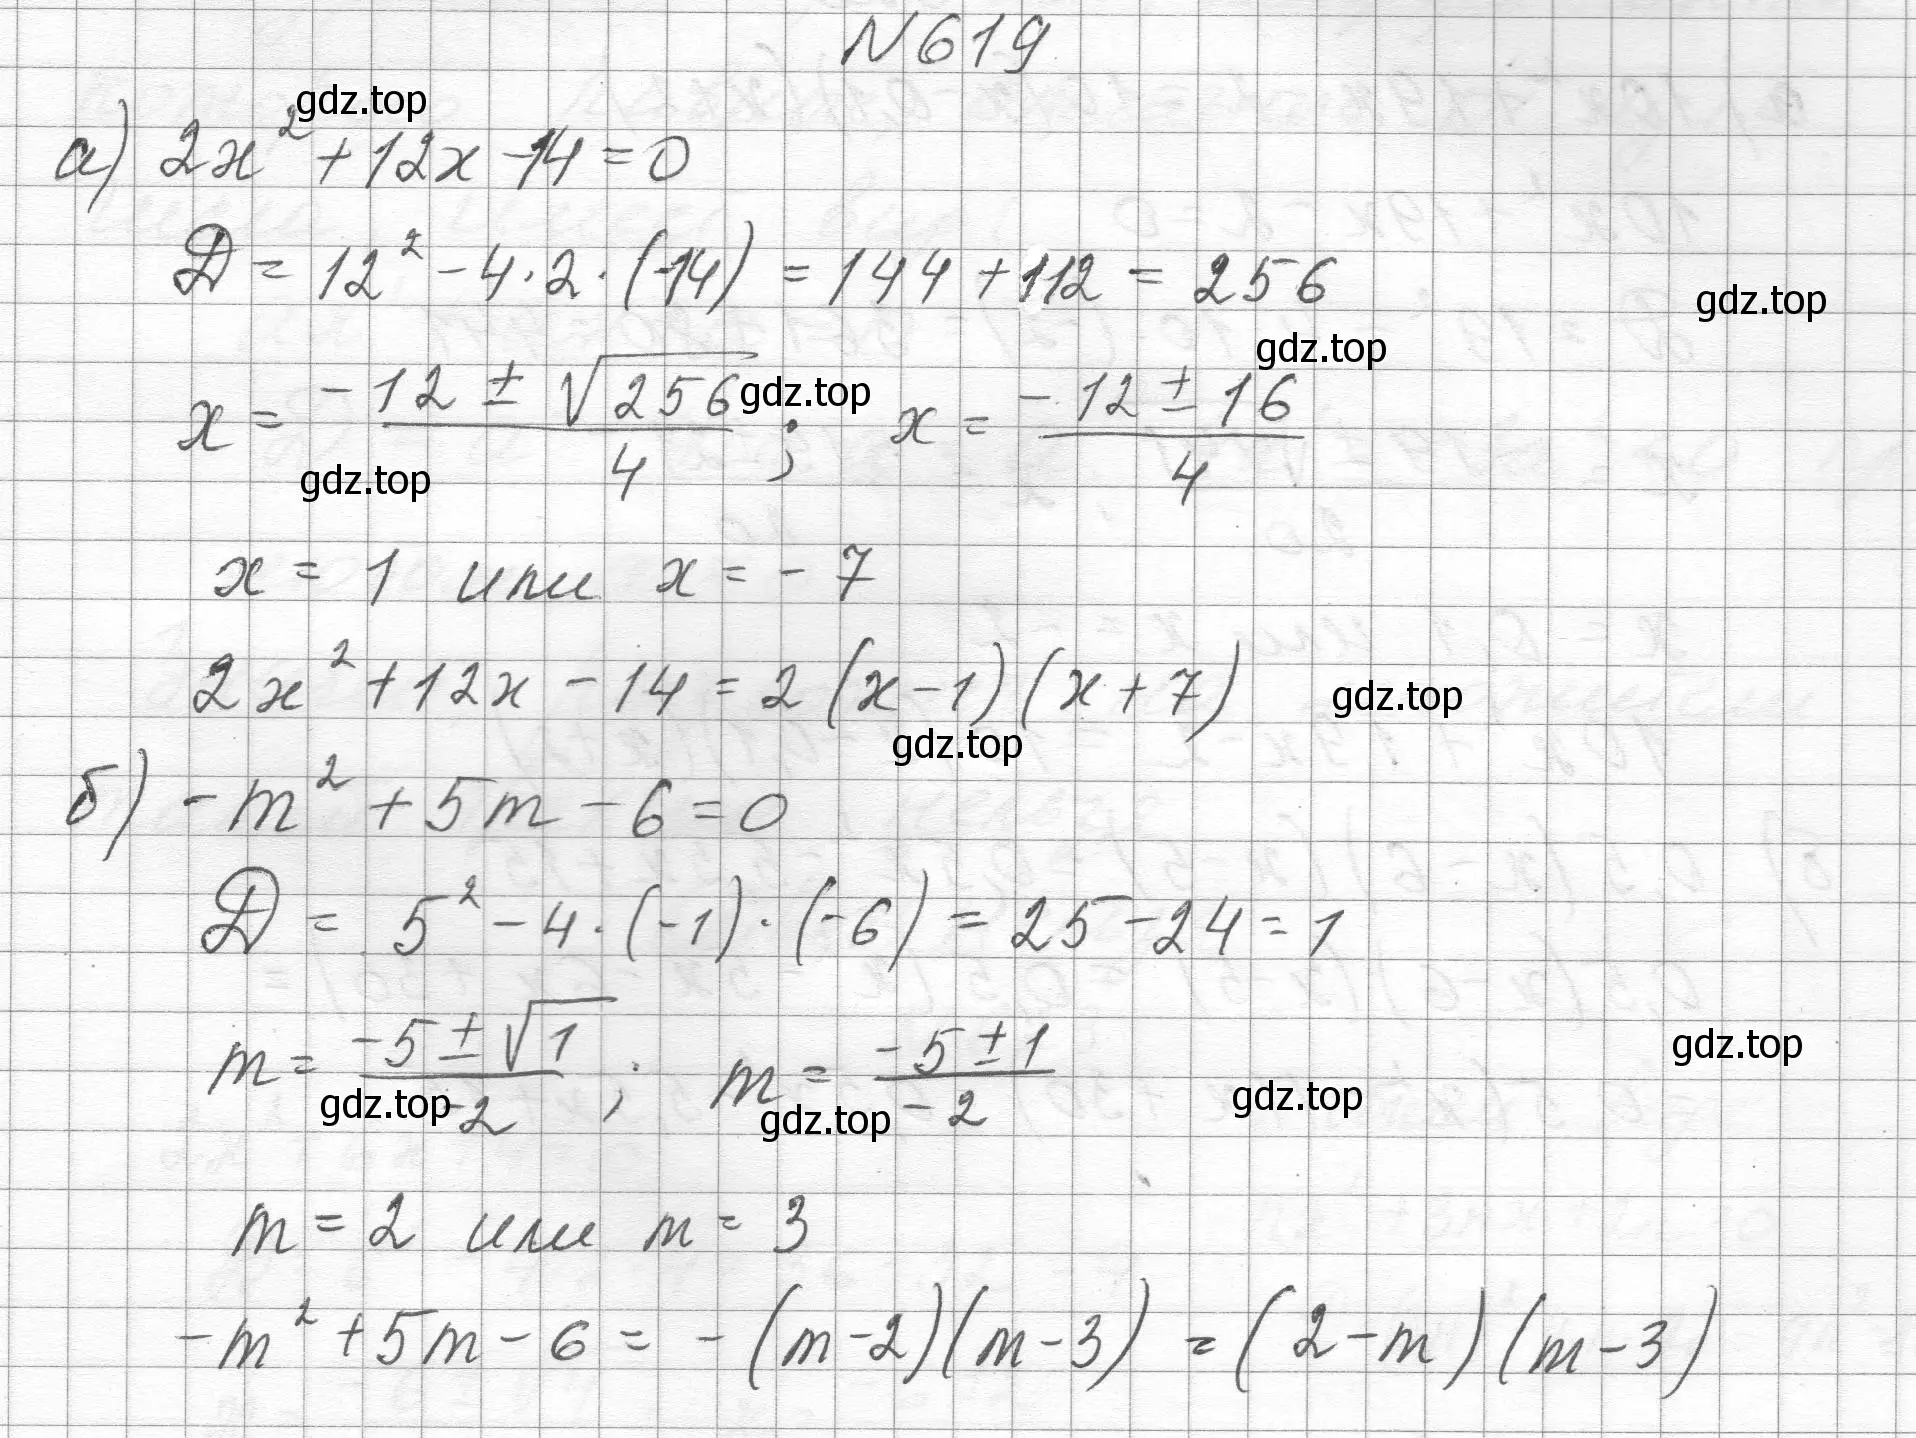 N 619
gdz.top
а) 2x² + 12x - 14 = 0
D = 12² - 4·2·(-14) = 144 + 112 = 256
gdz.top
gdz.top
x = (-12 ± √256)/4 ; x = (-12 ± 16)/4
gdz.top
gdz.top
x = 1 или x = -7
2x² + 12x - 14 = 2(x-1)(x+7)
gdz.top
gdz.top
б) -m² + 5m - 6 = 0
D = 5² - 4·(-1)·(-6) = 25 - 24 = 1
m = (-5 ± √1)/-2 ; m = (-5 ± 1)/-2
gdz.top
gdz.top
gdz.top
gdz.top
m = 2 или m = 3
-m² + 5m - 6 = -(m-2)(m-3) = (2-m)(m-3)